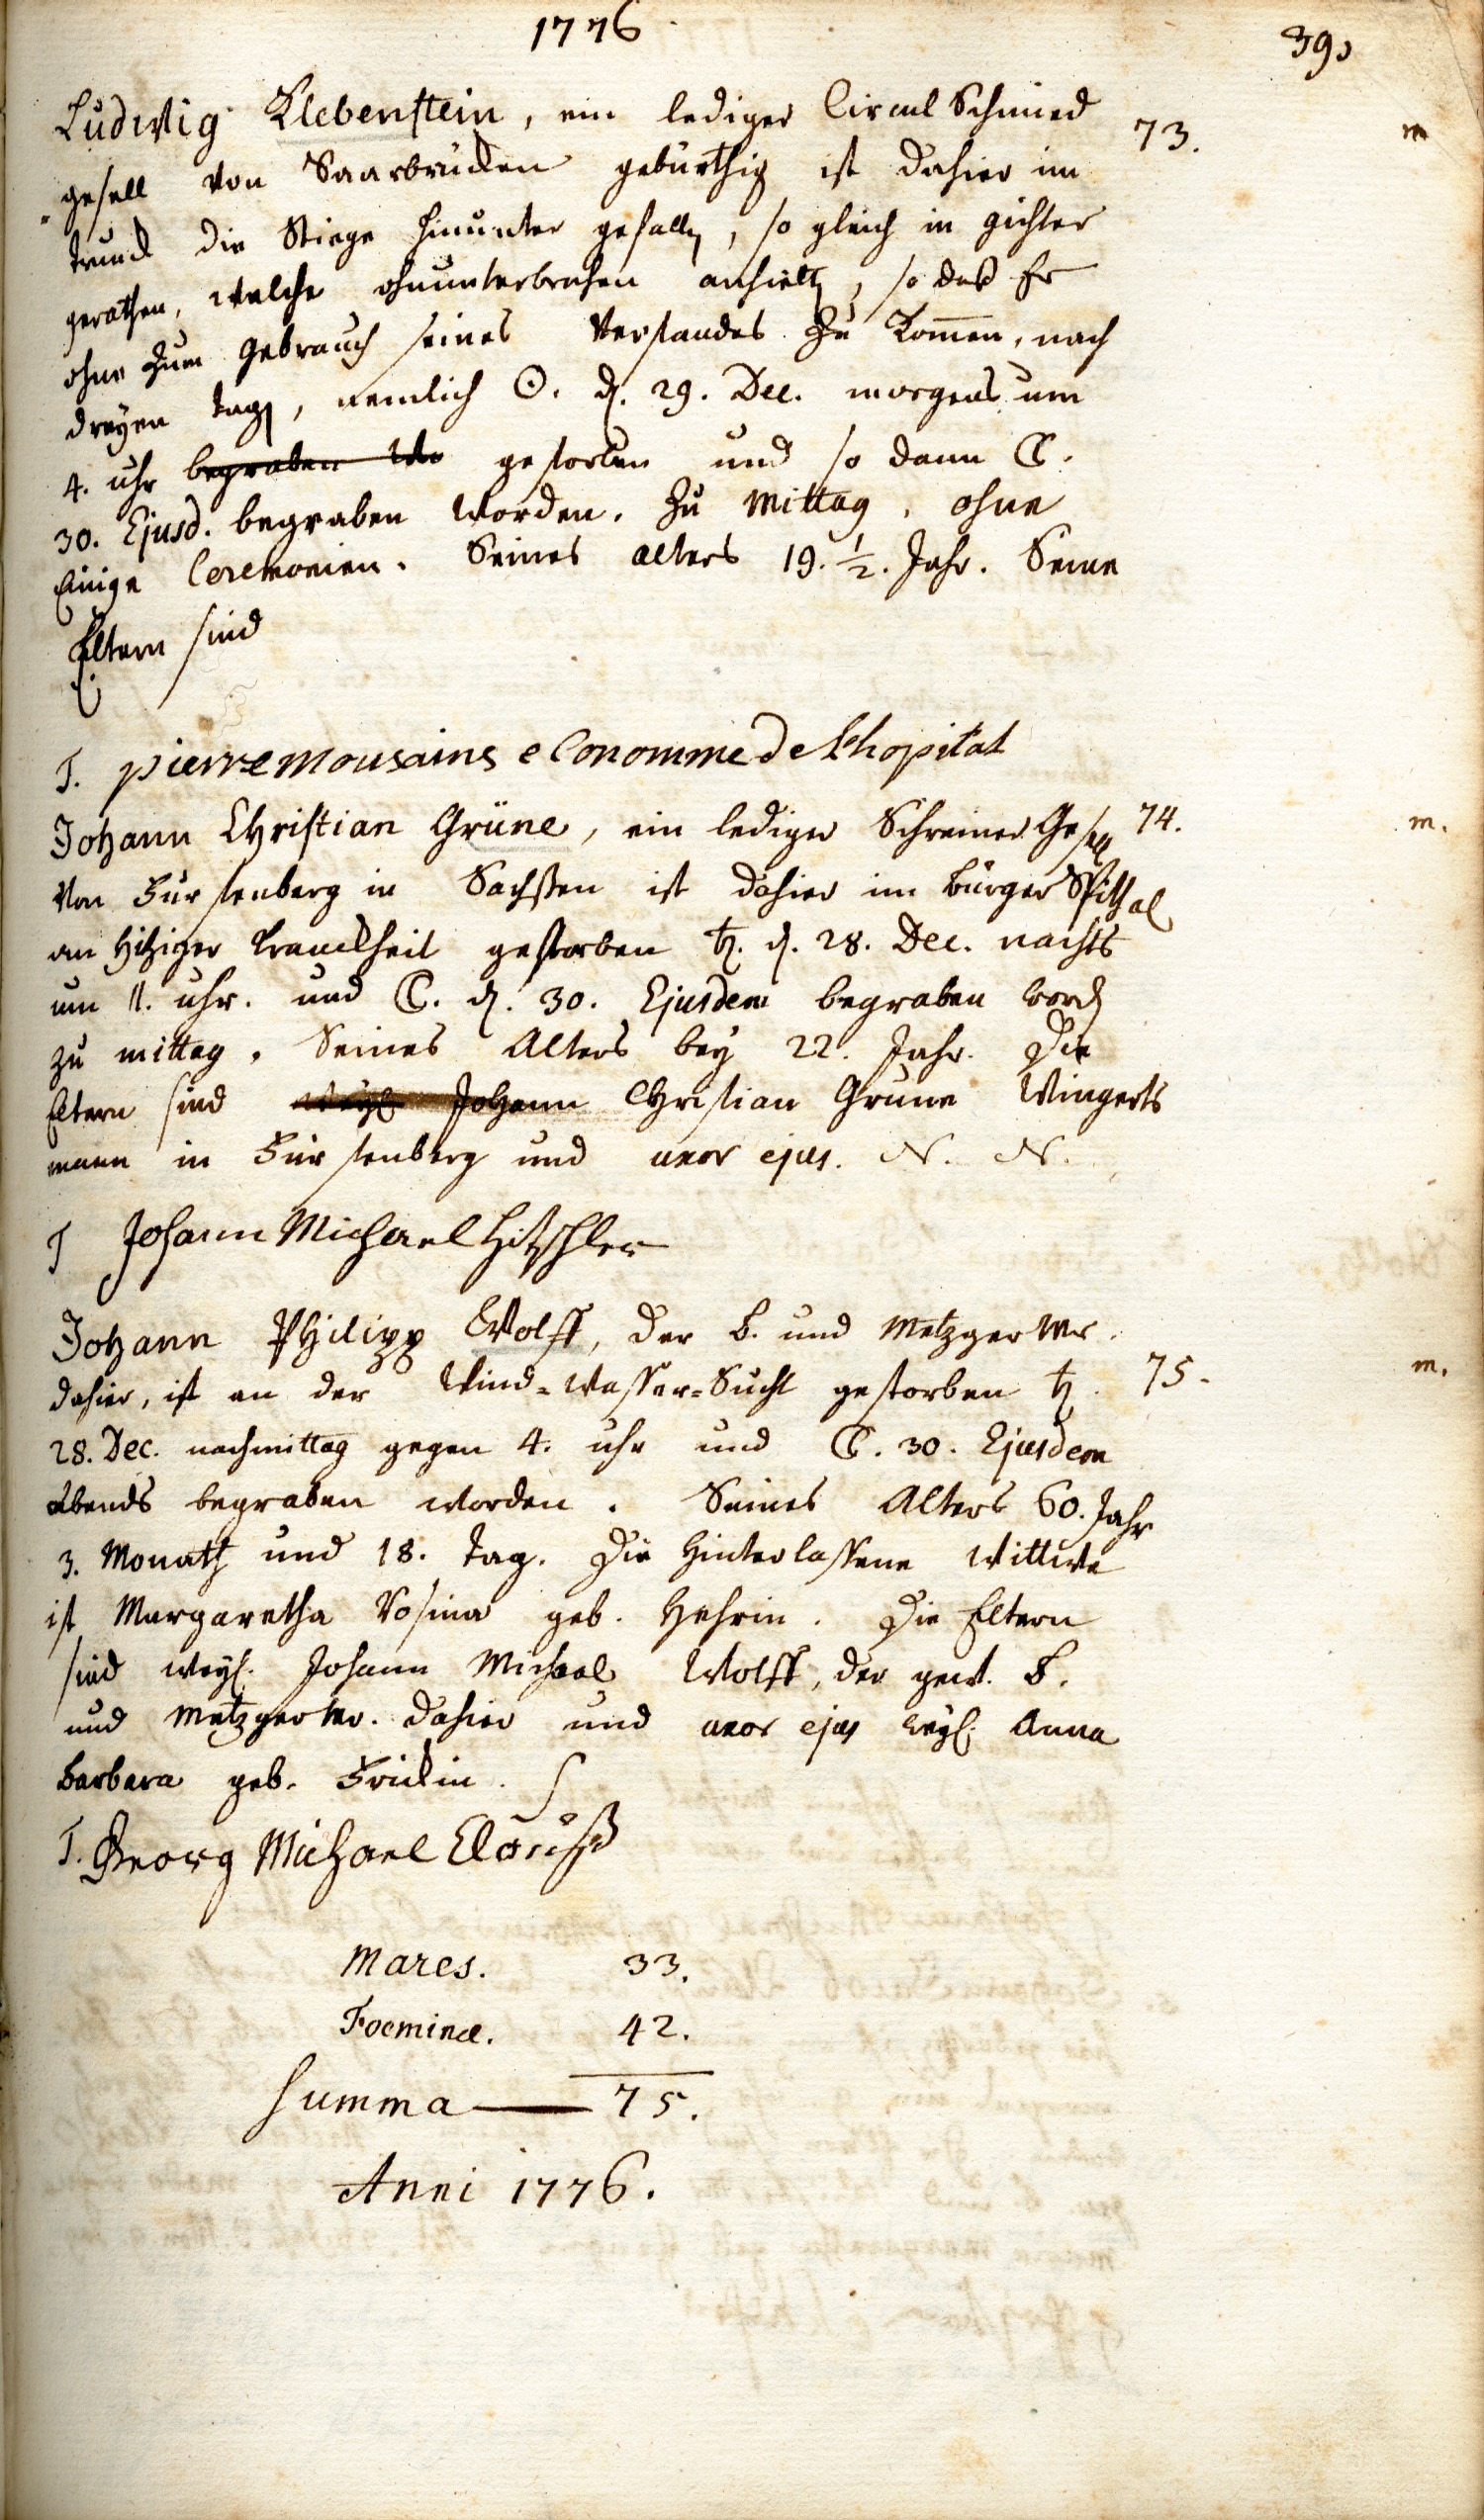 1776
39)
Ludwig Klebenstein, ein lediger Circul Schmied 73. m
gesell von Saarbrücken gebürthig ist dahier im
trunck die Stiege hinunter gefallen, so gleich in gichter
gerathen, welche ohnunterbrochen anhielten, so daß Er
ohne zum gebrauch seines Verstandes zu kommen, nach
dreyen tagen, nemlich ☉. d. 29. Dec. morgens um
4. uhr begraben wo gestorben und so dann ☾.
30. Ejusd. begraben worden. zu Mittag, ohne
Einige Ceremonien. Seines alters 19. ½. Jahr. Seine
Eltern sind
T. pierre mousains e Conomme de Lhopital
Johann Christian Grüne, ein lediger Schreiner Gesell 74. m.
von Fürstenberg in Sachsen ist dahier im bürger Spithal
an hitziger kranckheit gestorben ♄. d. 28. Dec. nachts
um 11. uhr. und ☾. d. 30. Ejusdem begraben worden
zu mittag. Seines Alters bey 22. Jahr. Die
Eltern sind weyl Johann Christian Grüne Wingerts
mann in Fürstenberg und uxor ejus. N. N.
T Johann Michael Hitschler
Johann Philipp Wolff, der b. und Metzger Mr.
dahier, ist an der Wind-Wasser-Sucht gestorben ♄. 75. m.
28. Dec. nachmittag gegen 4. uhr und ☾. 30. Ejusdem
Abends begraben worden. Seines Alters 60. Jahr
3. Monath und 18. Tag. Die hinterlassene Wittwe
ist Margaretha Rosina geb. Hehrin. Die Eltern
sind weyl. Johann Michael Wolff, der gew. b.
und Metzger Mr. dahier und uxor ejus weyl. Anna
barbara geb. Frickin.
T. Georg Michael Clauß
Mares. 33.
Foeminæ. 42.
Summa — 75.
Anni 1776.